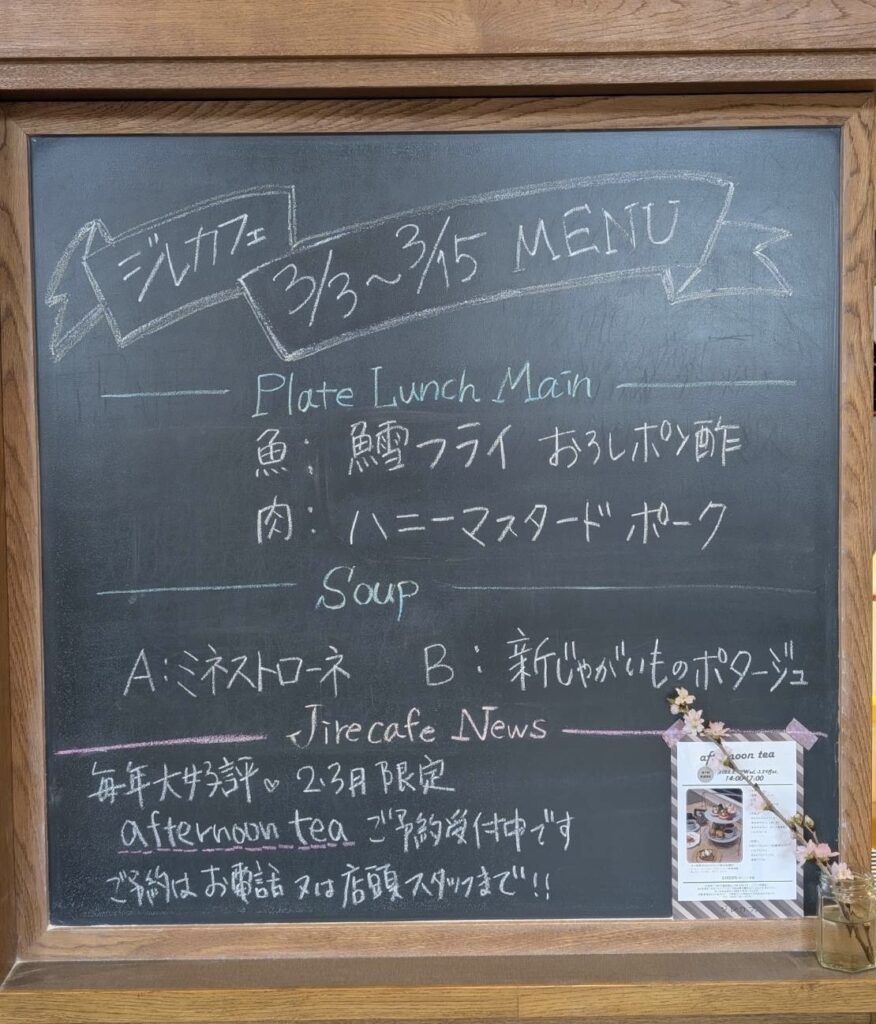 ジルカフェ
3/3～3/15 MENU
Plate Lunch Main
魚: 鱈フライ おろしポン酢
肉: ハニーマスタード ポーク
Soup
A:ミネストローネ B: 新じゃがいものポタージュ
Jirecafe News
毎年大好評♡ 2.3月限定
afternoon tea ご予約受付中です
ご予約はお電話又は店頭スタッフまで!!
noon tea
14:00-17:00